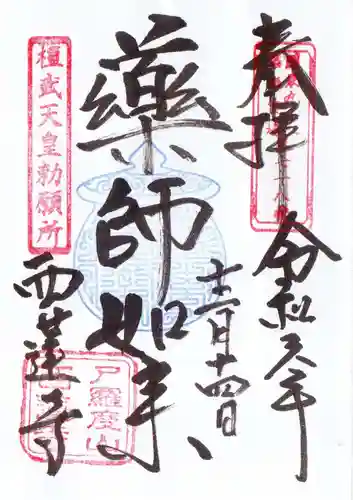 奉拝
令和
年
月十四日
藥師如来
桓武天皇勅願所
西蓮寺
尸羅度山